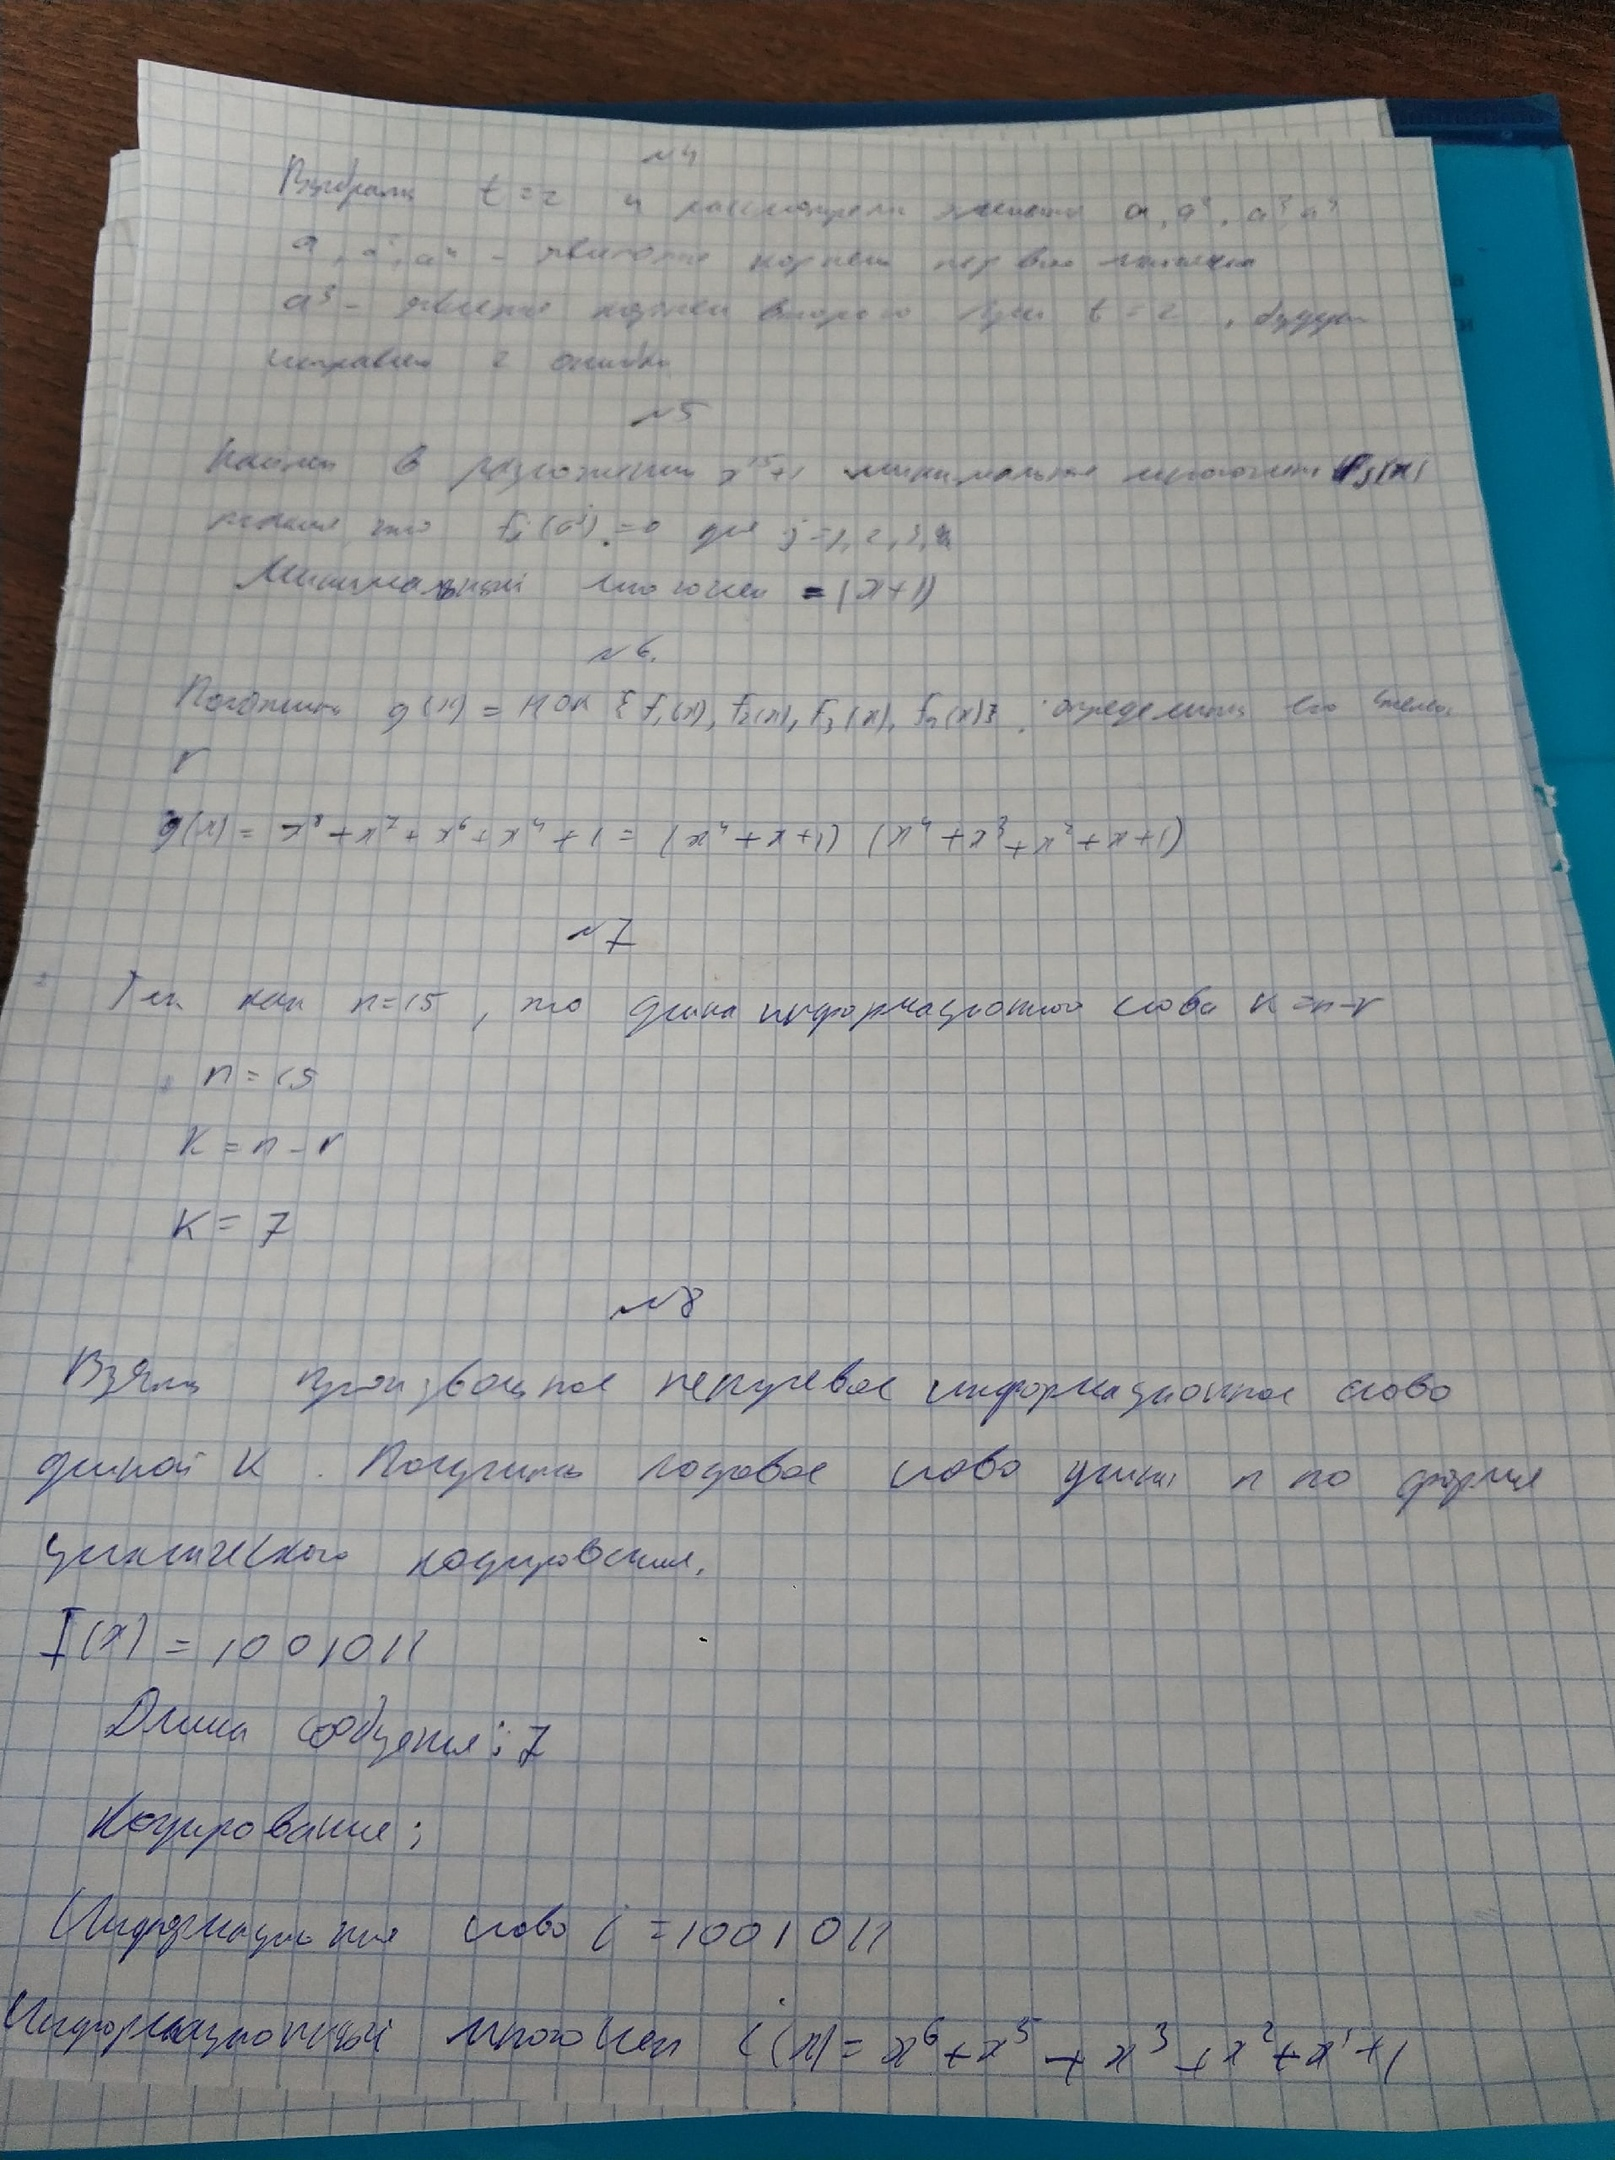 №4
Выбрали t=2 и рассмотрели элементы a, a², a³, a⁴
a, a², a⁴ – являются корнем первого многочлена
a³ – является корнем второго При t=2, будут
исправлено 2 ошибки
№5
Найти в разложении x¹⁵+1 минимальные многочлены fj(x)
такие, что fj(aʲ)=0 для j=1,2,3,4
Минимальный многочлен = (x+1)
№6.
Положить g(x) = НОК {f₁(x), f₂(x), f₃(x), f₄(x)}. определить его степень
r
g(x) = x⁸+x⁷+x⁶+x⁴+1 = (x⁴+x+1) (x⁴+x³+x²+x+1)
№7
Так как n=15, то длина информационного слова k=n-r
n=15
K=n-r
K=7
№8
Взять произвольное ненулевое информационное слово
длиной K. Получить кодовое слово длины n по форме
циклического кодирования.
I(x) = 1001011
Длина сообщения: 7
Кодирование:
Информационное слово i = 1001011
Информационный многочлен i(x) = x⁶+x⁵+x³+x²+x¹+1